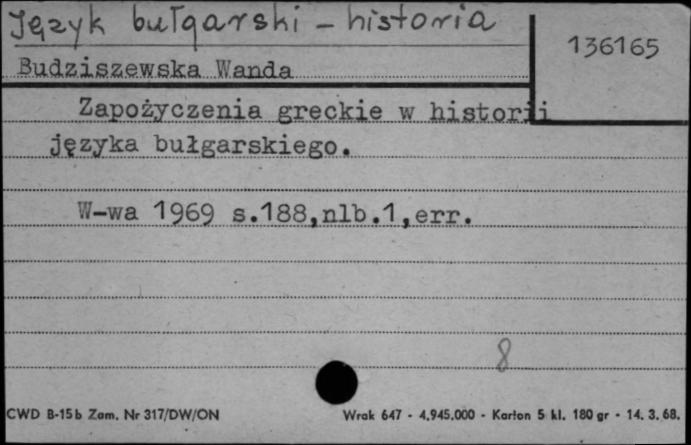 Język bułgarski - historia
136165
Budziszewska Wanda
Zapożyczenia greckie w historii
języka bułgarskiego.
W-wa 1969 s.188,nlb.1,err.
8
CWD B-15b Zam. Nr 317/DW/ON
Wrak 647 - 4,945.000 - Karton 5 kl. 180 gr - 14. 3. 68.